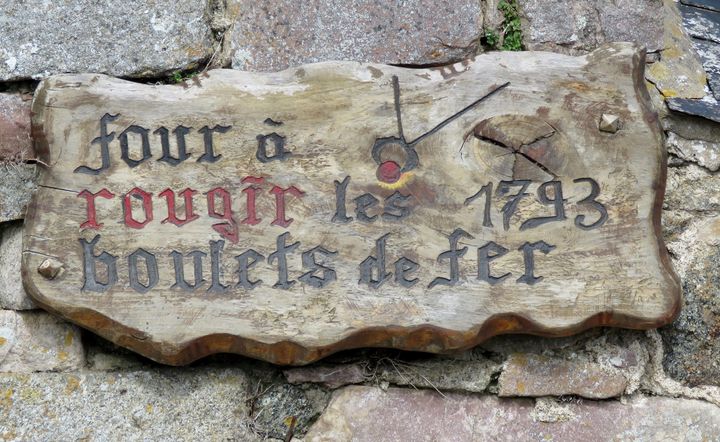 four à
rougir les 1793
boulets de fer